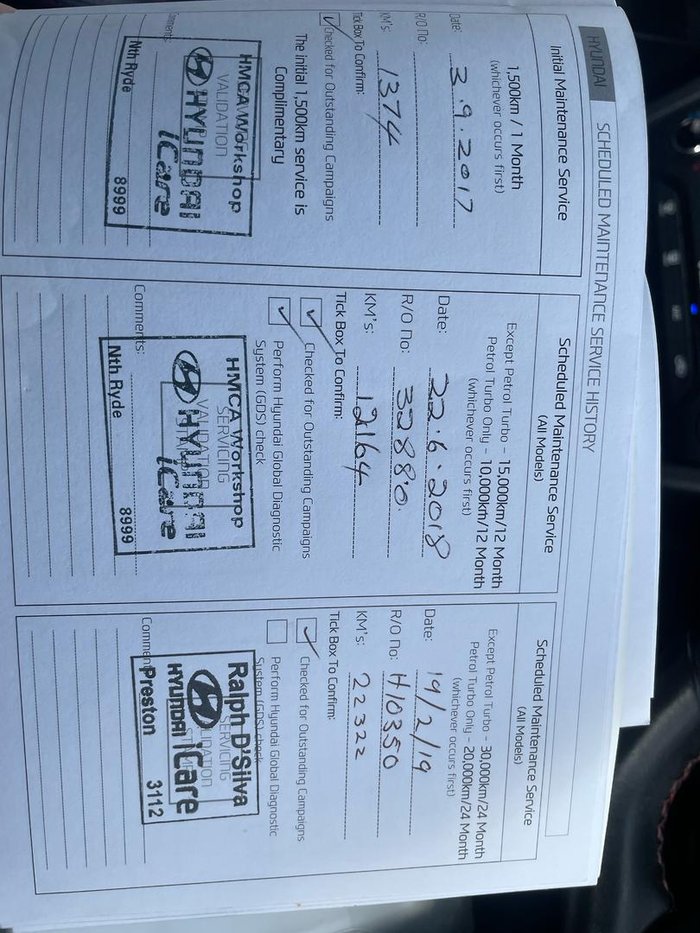 HYUNDAI SCHEDULED MAINTENANCE SERVICE HISTORY
Initial Maintenance Service
1,500km / 1 Month
(whichever occurs first)
Date: 3.9.2017
R/O No:
KM's: 1374
Tick Box To Confirm:
Checked for Outstanding Campaigns
The initial 1,500km service is
Complimentary
HMCA Workshop
VALIDATION
HYUNDAI
iCare
Nth Ryde 8999
Scheduled Maintenance Service
(All Models)
Except Petrol Turbo - 15,000km/12 Month
Petrol Turbo Only - 10,000km/12 Month
(whichever occurs first)
Date: 22.6.2018
R/O No: 32880
KM's: 12164
Tick Box To Confirm:
Checked for Outstanding Campaigns
Perform Hyundai Global Diagnostic
System (GDS) check
HMCA Workshop
SERVICING
HYUNDAI
iCare
Comments:
Nth Ryde 8999
Scheduled Maintenance Service
(All Models)
Except Petrol Turbo - 30,000km/24 Month
Petrol Turbo Only - 20,000km/24 Month
(whichever occurs first)
Date: 19/2/19
R/O No: H10350
KM's: 22322
Tick Box To Confirm:
Checked for Outstanding Campaigns
Perform Hyundai Global Diagnostic
System (GDS) check
Ralph D'Silva
SERVICING
HYUNDAI iCare
Preston 3112